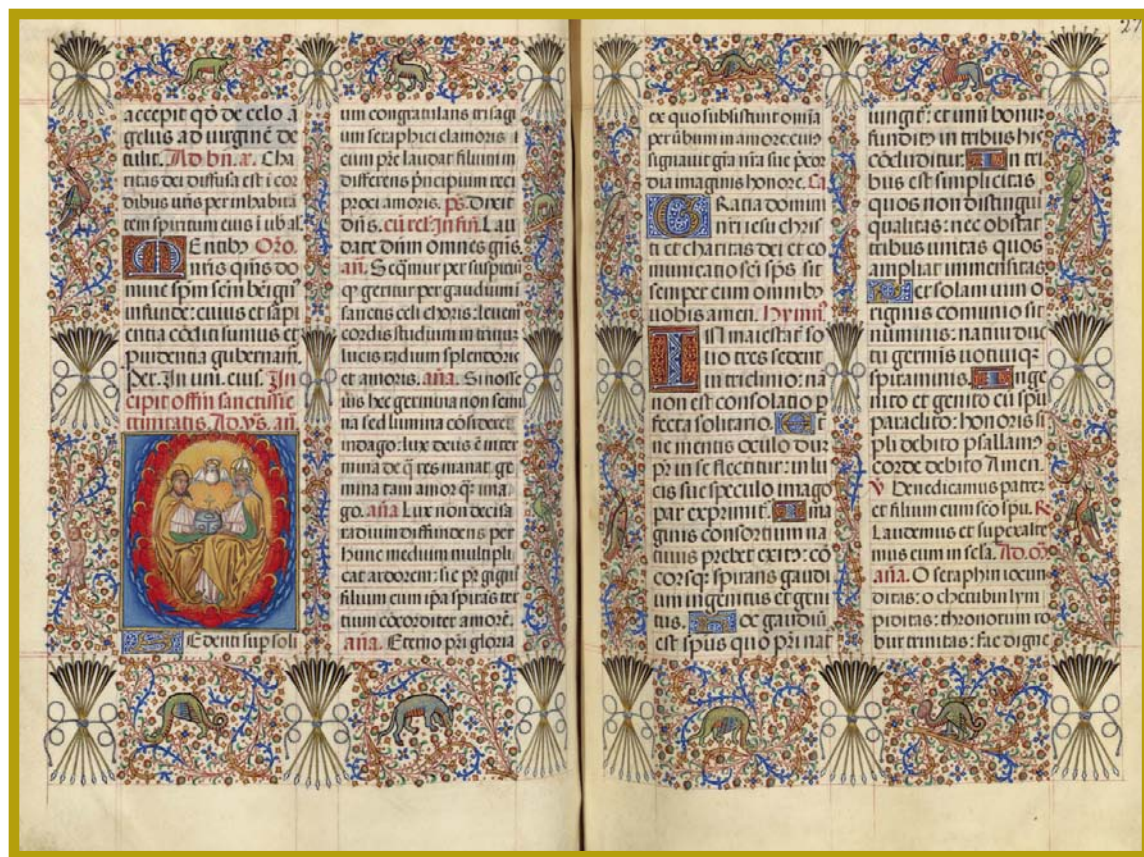 accepit qđ de celo a
gelus ad uirginē de
tulit. Ad bñ. Cha
ritas dei diffusa est i cor
dibus per inhabitā
tem spiritum eius
Oro.
do
mine spm scm
infunde: cuius et sapi
entia cōditi sumus et
prudentia gubernam̄.
Per. In uni. eius. In
cipit offm sanctissie
trinitatis. Ad ṽs. an
Edenti sup soli
um congratulans trisagi
um seraphici clamoris
cum pr̄e laudat filium in
differens pricipium reci
proci amoris. ps. Dixit
dñs. Lau
date dñm omnes
an̄. Seqmur per suspiriū
qͥ geritur per gaudium
sanctis celi choris: leuem
cordis studium
lucis radium splendoris
et amoris. an̄a. Si nosse
hec germina non semi
na sed lumina cōsidere
indago: lux deus ē inter
mina de q̄ res manat ge
mina tam amor q̄ ima
go. an̄a Lux non decisa
radium diffundens per
hunc medium multipli
cat ardorem: sic pr̄ gignit
filium cum spirās ter
tium cōcorditer amorē.
an̄a. Eterno pr̄i gloria
27
ex quo subsistunt omīa
per ūbum in amore cum
signauit grā nra sue
dia imaginis honore. Ca
GRatia domini
nri iesu chris
ti et charitas dei et co
municatio sci sp̄s sit
semper cum omnibꝫ
uobis amen. hymn̄.
IN maiestat̄ so
lio tres sedent
in triclinio: nā
non est consolatio p
fecta solitario. E
ne mentis oculo dux
pr̄ in se flectitur: in lu
cis sue speculo imago
par exprimit̄. Ima
ginis consortium na
tiuus prebet exitꝰ: cō
corsqꝫ spirans gaudi
um ingenitus et geni
tus. Hoc gaudiū
est sp̄us quo pr̄i nat
iungit̄: et unū bonum
funditꝰ in tribus hic
cōcluditur. In tri
bus est simplicitas
quos non distingui
qualitas: nec obstat
tribus unitas quos
ampliat immensitas
Per solam uim o
riginis comunio sit
numinis: natiui duc
tu germinis uotiuiqꝫ
spiraminis. Inge
nito et genito cū spu
paraclito: honoris si
pli debito psallamꝰ
corde debito Amen.
V Benedicamus patrem
et filium cum sco spu. R.
Laudemus et superexalte
mus eum in scla. Ad.
an̄a. O seraphin iocun
ditas: o cherubin lym
piditas: thronorum ro
bur trinitas: fac digne